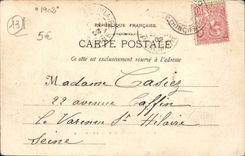 "1902"
13
5€
RÉPUBLIQUE FRANÇAISE
CARTE POSTALE
Ce côté est exclusivement réservé à l'adresse
Madame Casiez
22 avenue Caffin
La Varenne St Hilaire
Seine